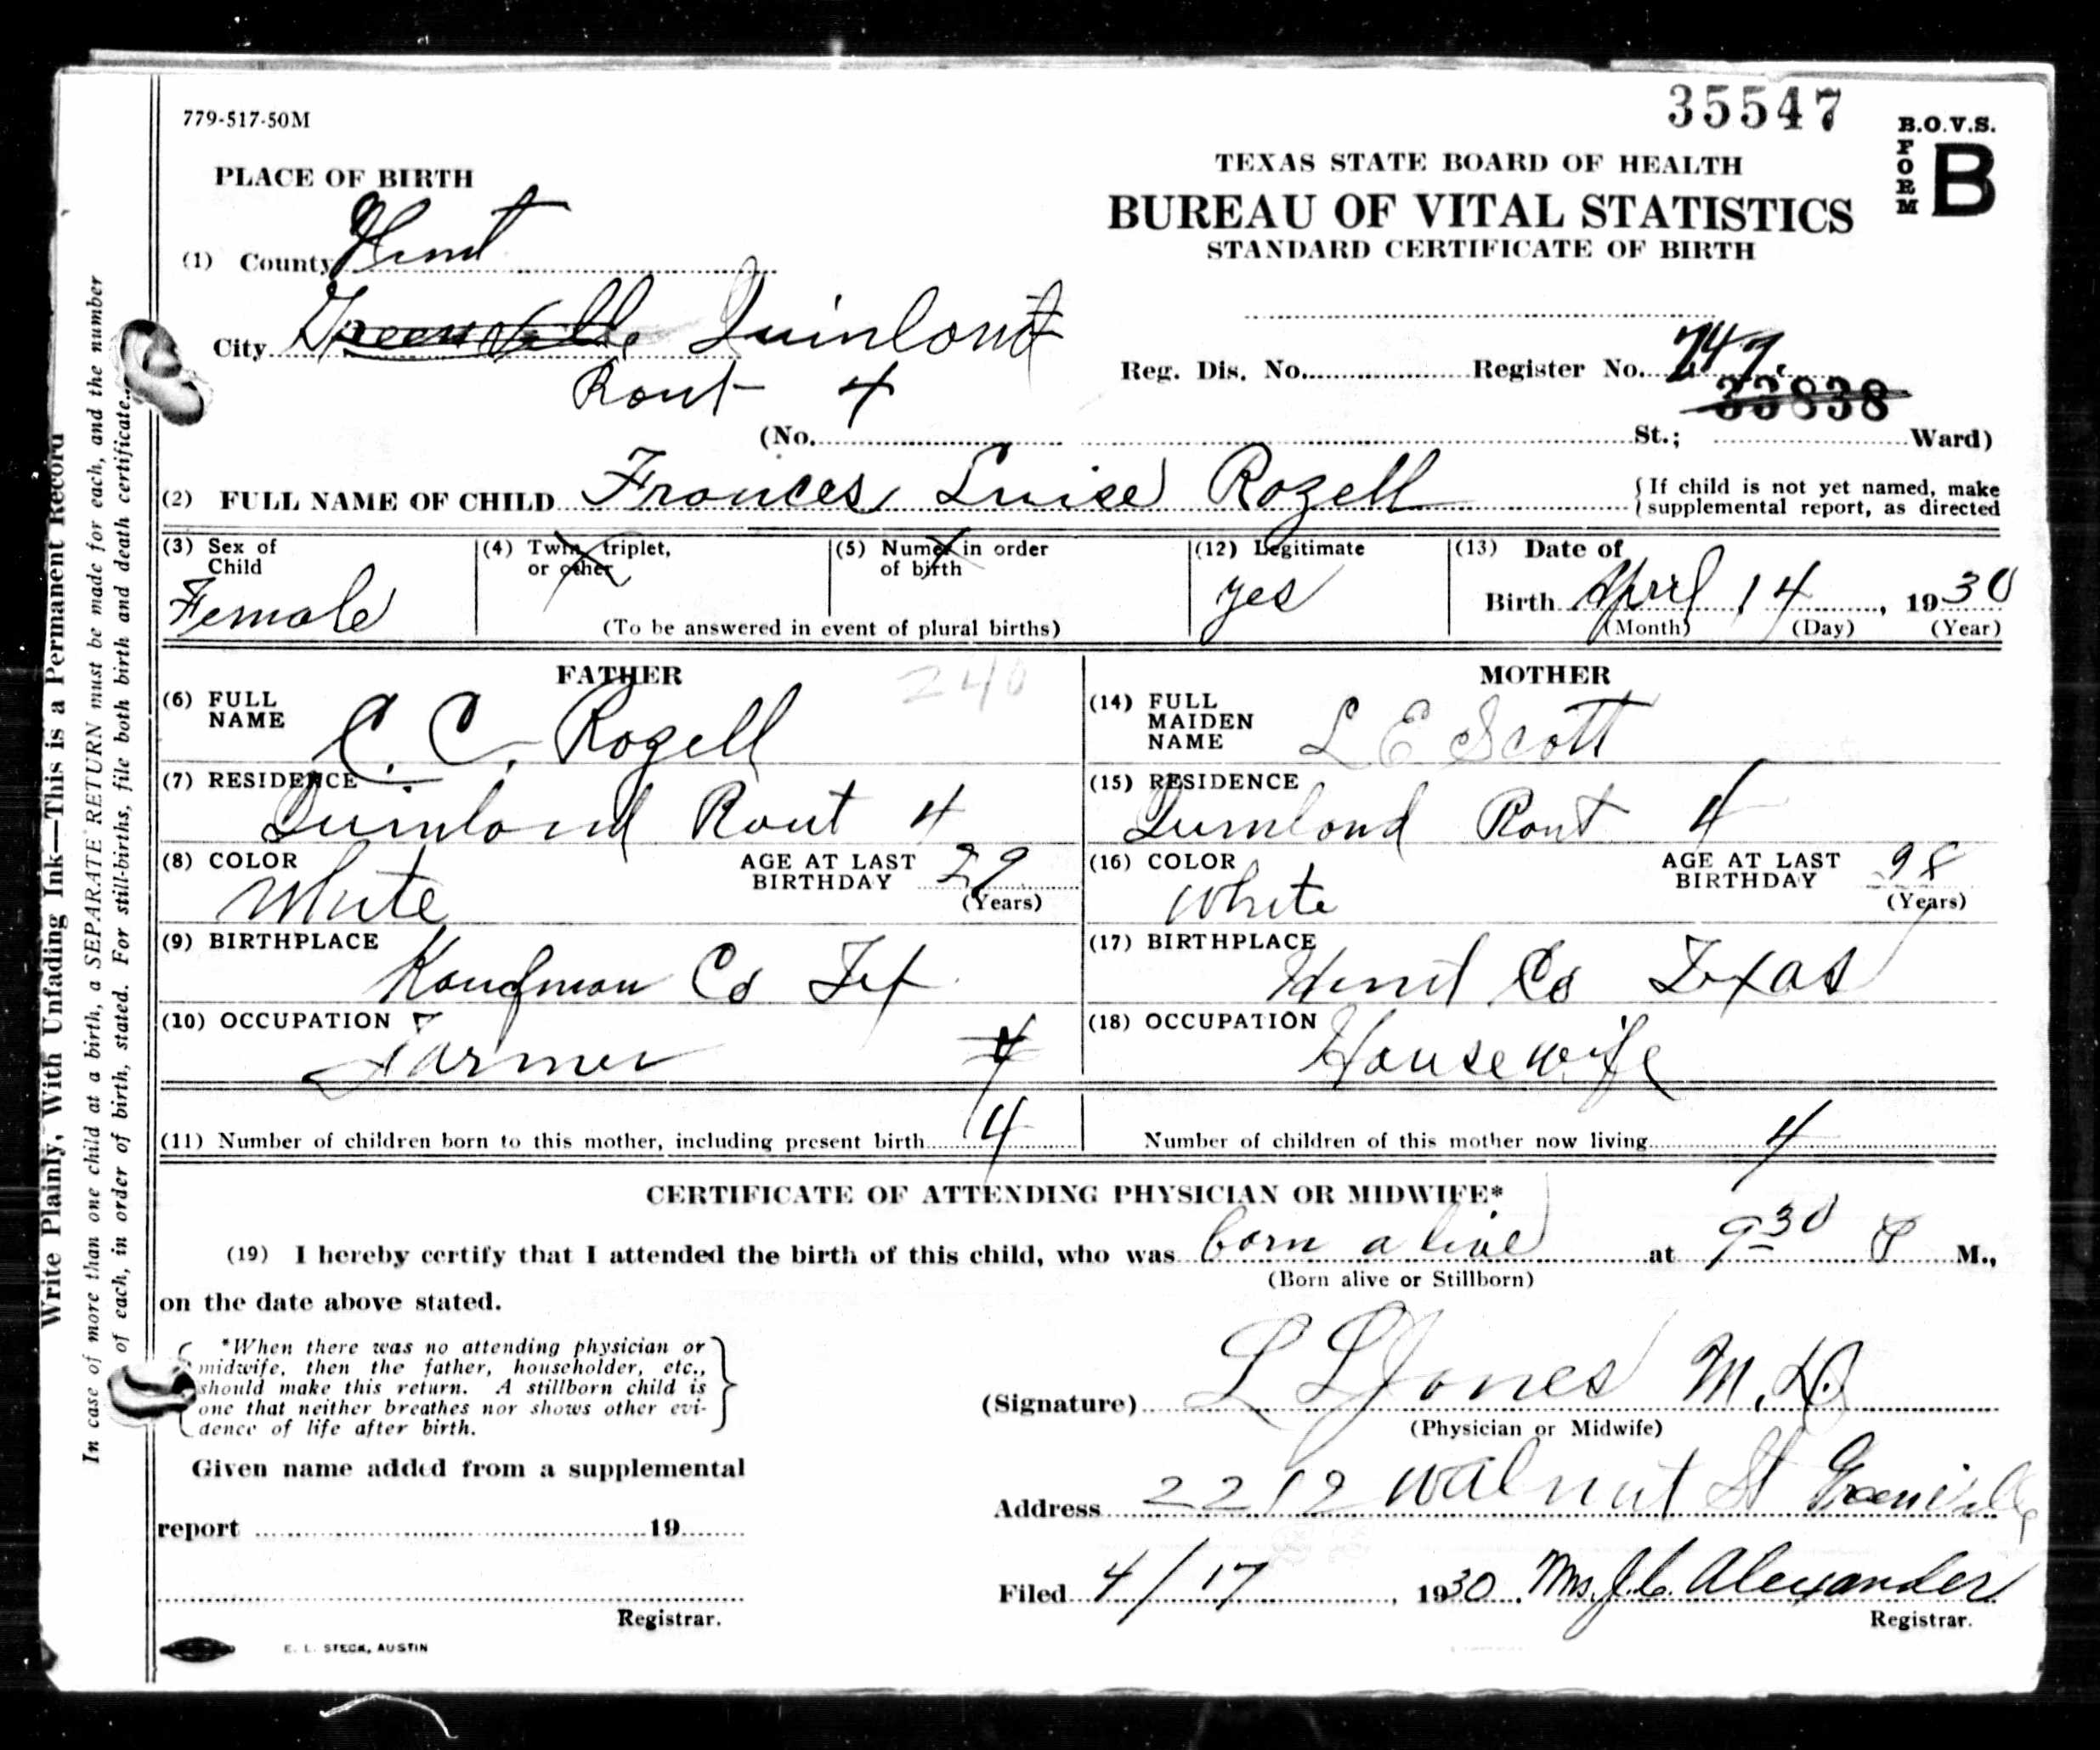 779-517-50M
35547
B.O.V.S.
FORM B
PLACE OF BIRTH
TEXAS STATE BOARD OF HEALTH
BUREAU OF VITAL STATISTICS
STANDARD CERTIFICATE OF BIRTH
(1) County Hunt
City Greenville Quinland
Rout 4
Reg. Dis. No. Register No. 747.
33838
(No. St.; Ward)
(2) FULL NAME OF CHILD Frances Luise Rozell
{If child is not yet named, make
{supplemental report, as directed
(3) Sex of Child Female
(4) Twin, triplet, or other
(5) Number in order of birth
(To be answered in event of plural births)
(12) Legitimate yes
(13) Date of Birth April 14, 1930
(Month) (Day) (Year)
FATHER
240
(6) FULL NAME C. C. Rozell
(7) RESIDENCE Quinland Rout 4
(8) COLOR White AGE AT LAST BIRTHDAY 29 (Years)
(9) BIRTHPLACE Kaufman Co Tex
(10) OCCUPATION Farmer 4
MOTHER
(14) FULL MAIDEN NAME L E Scott
(15) RESIDENCE Quinland Rout 4
(16) COLOR White AGE AT LAST BIRTHDAY 28 (Years)
(17) BIRTHPLACE Hunt Co Texas
(18) OCCUPATION Housewife
(11) Number of children born to this mother, including present birth 4
Number of children of this mother now living 4
CERTIFICATE OF ATTENDING PHYSICIAN OR MIDWIFE*
(19) I hereby certify that I attended the birth of this child, who was born alive at 9 30 P M.,
(Born alive or Stillborn)
on the date above stated.
*When there was no attending physician or
midwife, then the father, householder, etc.,
should make this return. A stillborn child is
one that neither breathes nor shows other evi-
dence of life after birth.
(Signature) L L Jones M.D.
(Physician or Midwife)
Given name added from a supplemental
report 19
Registrar.
Address 2212 Walnut St Greenville
Filed 4/17, 1930. Mrs. J. C. Alexander
Registrar.
E. L. STECK, AUSTIN
Write Plainly, With Unfading Ink—This is a Permanent Record
In case of more than one child at a birth, a SEPARATE RETURN must be made for each, and the number
of each, in order of birth, stated. For still-births, file both birth and death certificate.